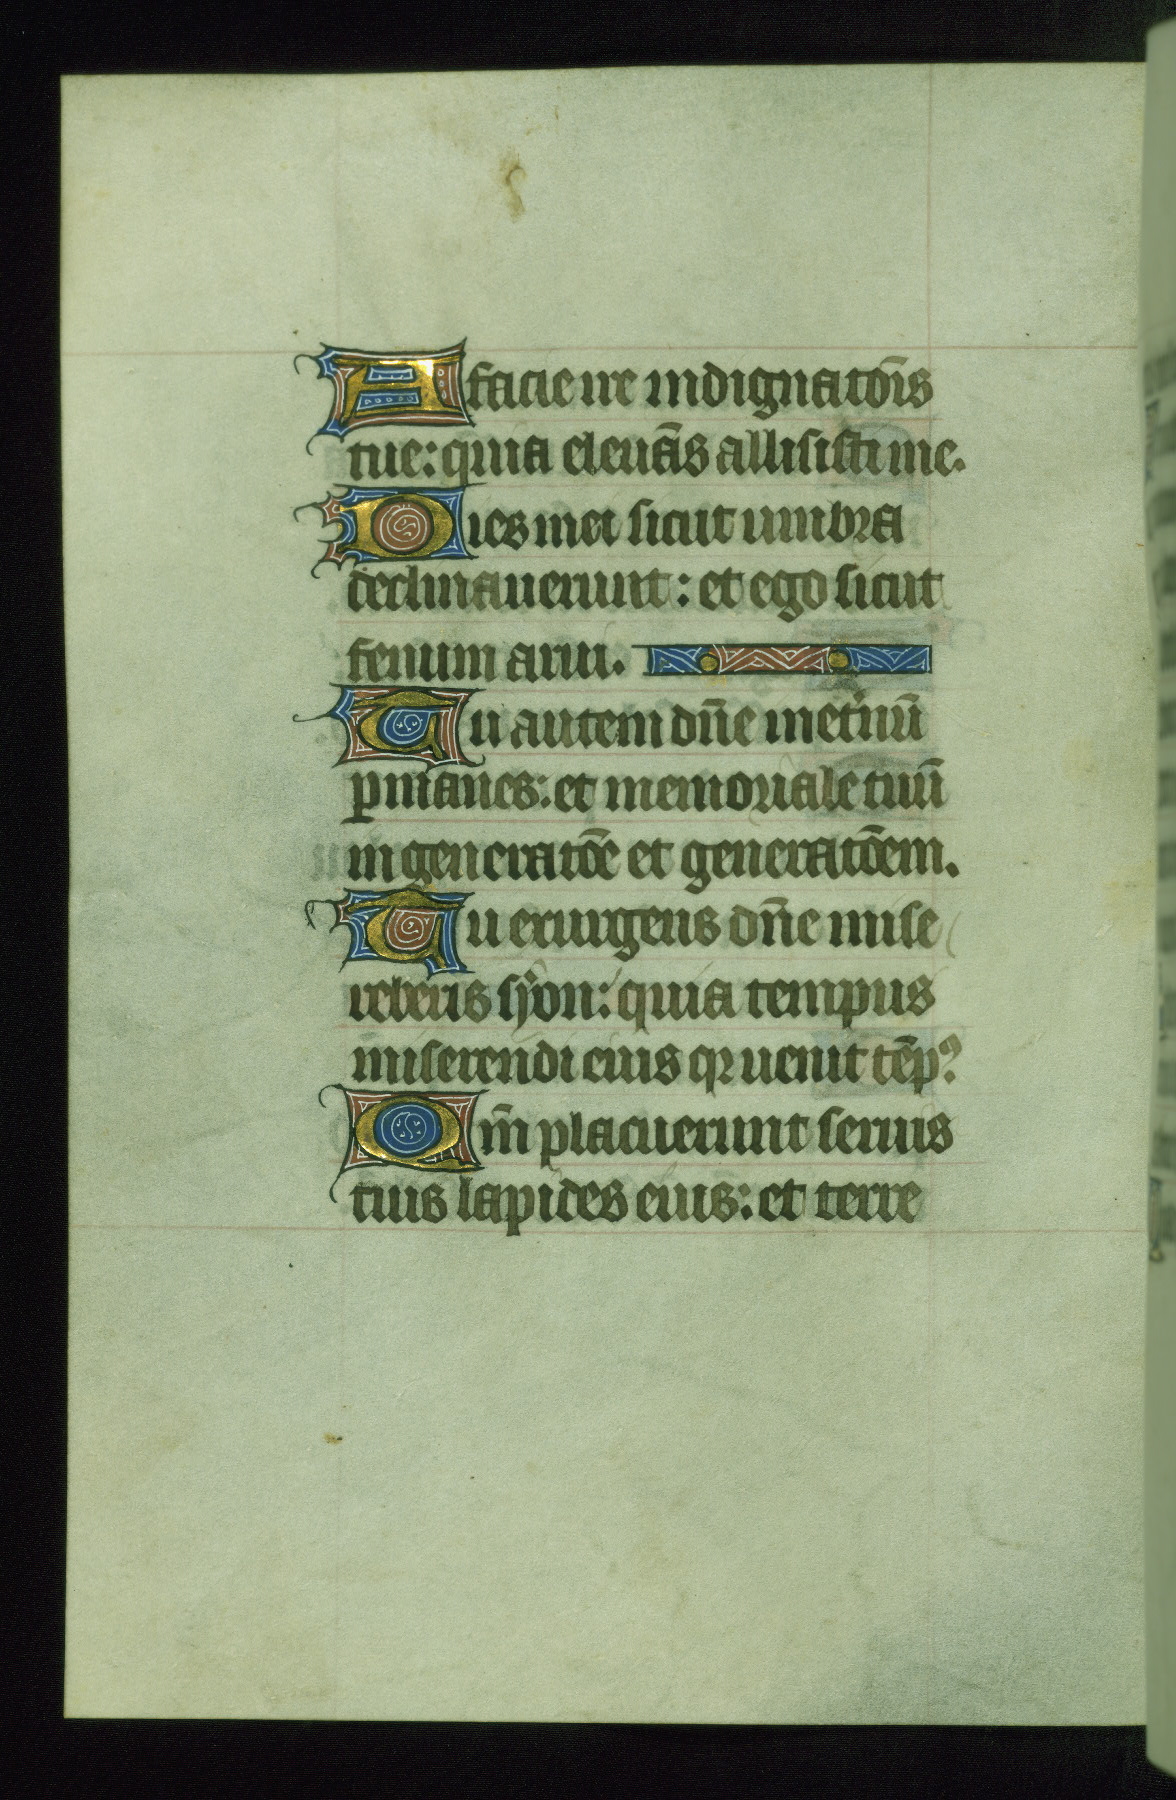 A facie ire indignatōis
tue: quia eleuās allisisti me.
Dies mei sicut umbra
declinauerunt: et ego sicut
fenum arui.
Tu autem dn̄e inet'nū
ꝑmanes: et memoriale tuū
in generatōe et generatōem.
Tu exurgens dn̄e mise
reberis syon: quia tempus
miserendi eius qꝛ uenit tēpꝰ
Qm̄ placuerunt seruis
tuis lapides eius: et terre